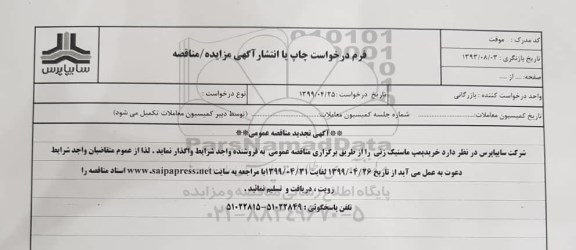 سایپاپرس
فرم درخواست چاپ یا انتشار آگهی مزایده/مناقصه
کد مدرک : موقت
تاریخ بازنگری : ۱۳۹۳/۰۸/۰۳
صفحه: ... از ...
واحد درخواست کننده : بازرگانی
تاریخ درخواست : ۱۳۹۹/۰۴/۲۵
نوع درخواست :
تاریخ کمیسیون معاملات: شماره جلسه کمیسیون معاملات (توسط دبیر کمیسیون معاملات تکمیل می شود)
**آگهی تجدید مناقصه عمومی**
شرکت سایپاپرس در نظر دارد خریدپمپ ماستیک زنی را از طریق برگزاری مناقصه عمومی به فروشنده واجد شرایط واگذار نماید . لذا از عموم متقاضیان واجد شرایط
دعوت به عمل می آید از تاریخ ۱۳۹۹/۰۴/۲۶ لغایت ۱۳۹۹/۰۴/۳۱ با مراجعه به سایت www.saipapress.net اسناد مناقصه را
رویت ، دریافت و تسلیم نمائید .
تلفن پاسخگوئی : ۵۱۰۲۲۸۴۹-۵۱۰۲۲۸۱۵
ParsNamadData
پایگاه اطلاع رسانی مناقصه و مزایده
۰۲۱-۸۸۳۴۹۶۷۰-۵